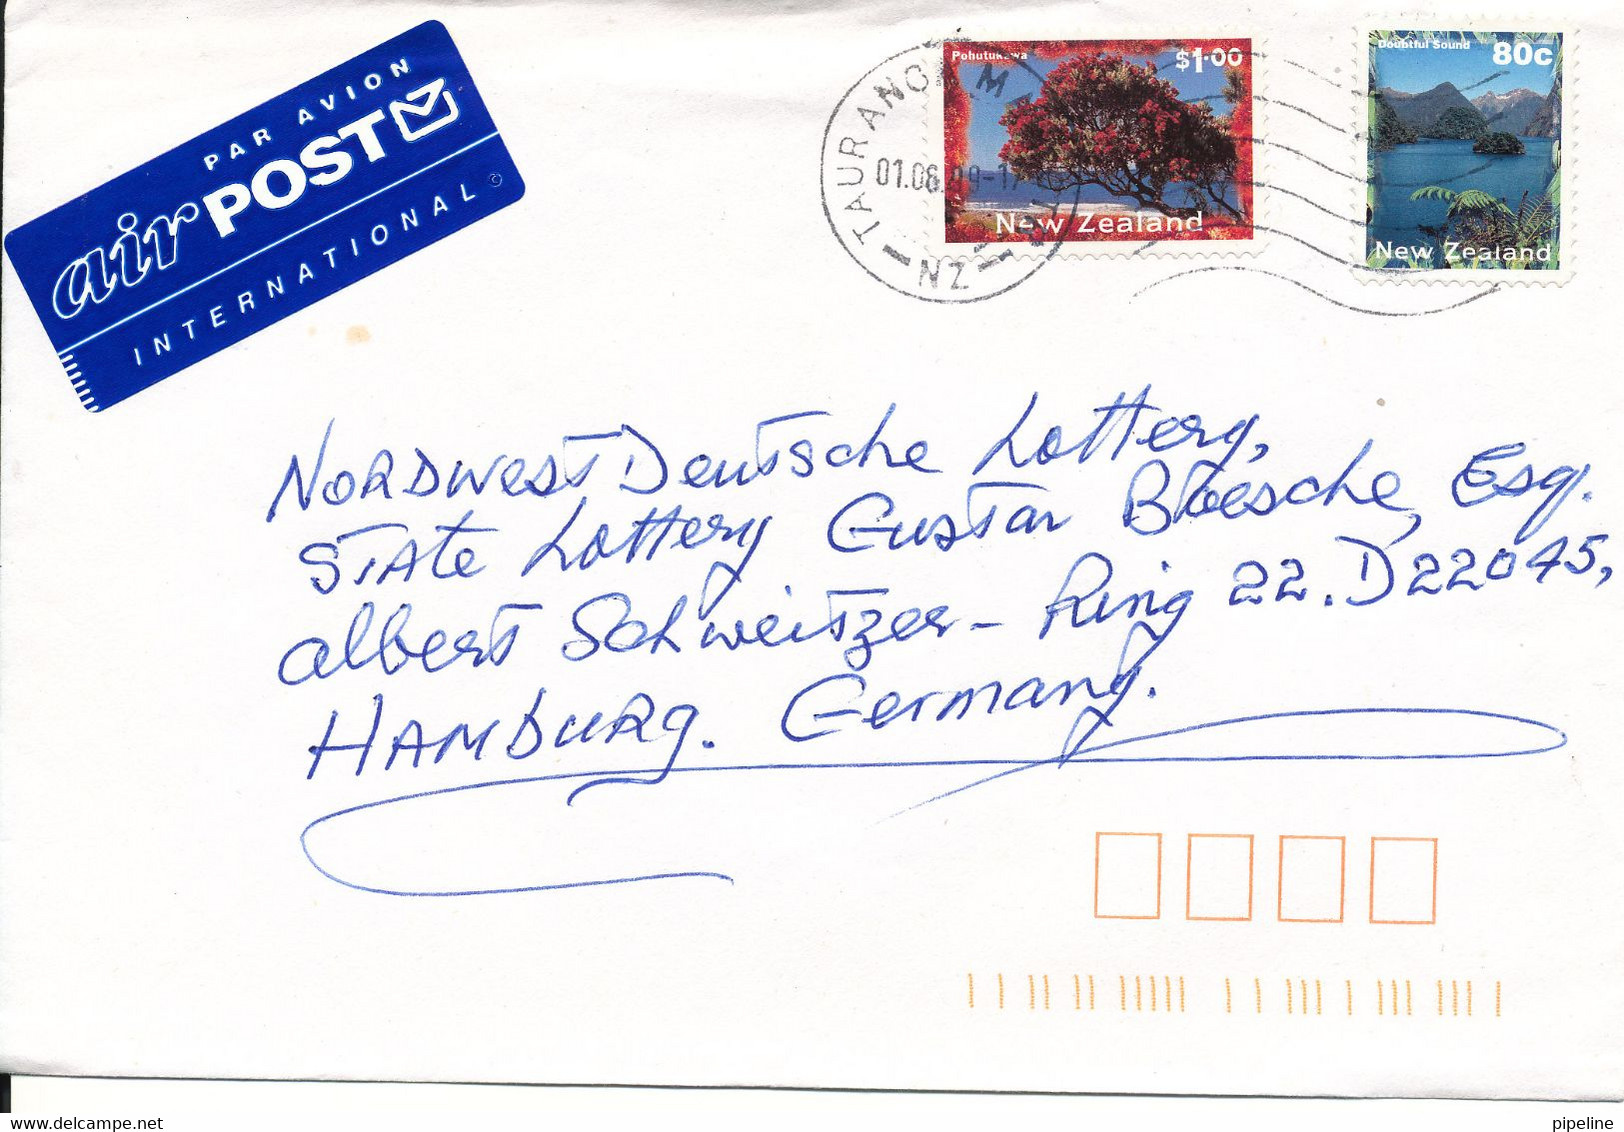 PAR AVION
airPOST
INTERNATIONAL
Pohutukawa
$1.00
New Zealand
Doubtful Sound
80c
New Zealand
NZ
NORDWEST Deutsche Lottery,
STATe Lottery Gustav Bloesche, Esq.
Albert Schweitzer - Ring 22. D22045,
HAMBURG. Germany.
pipeline